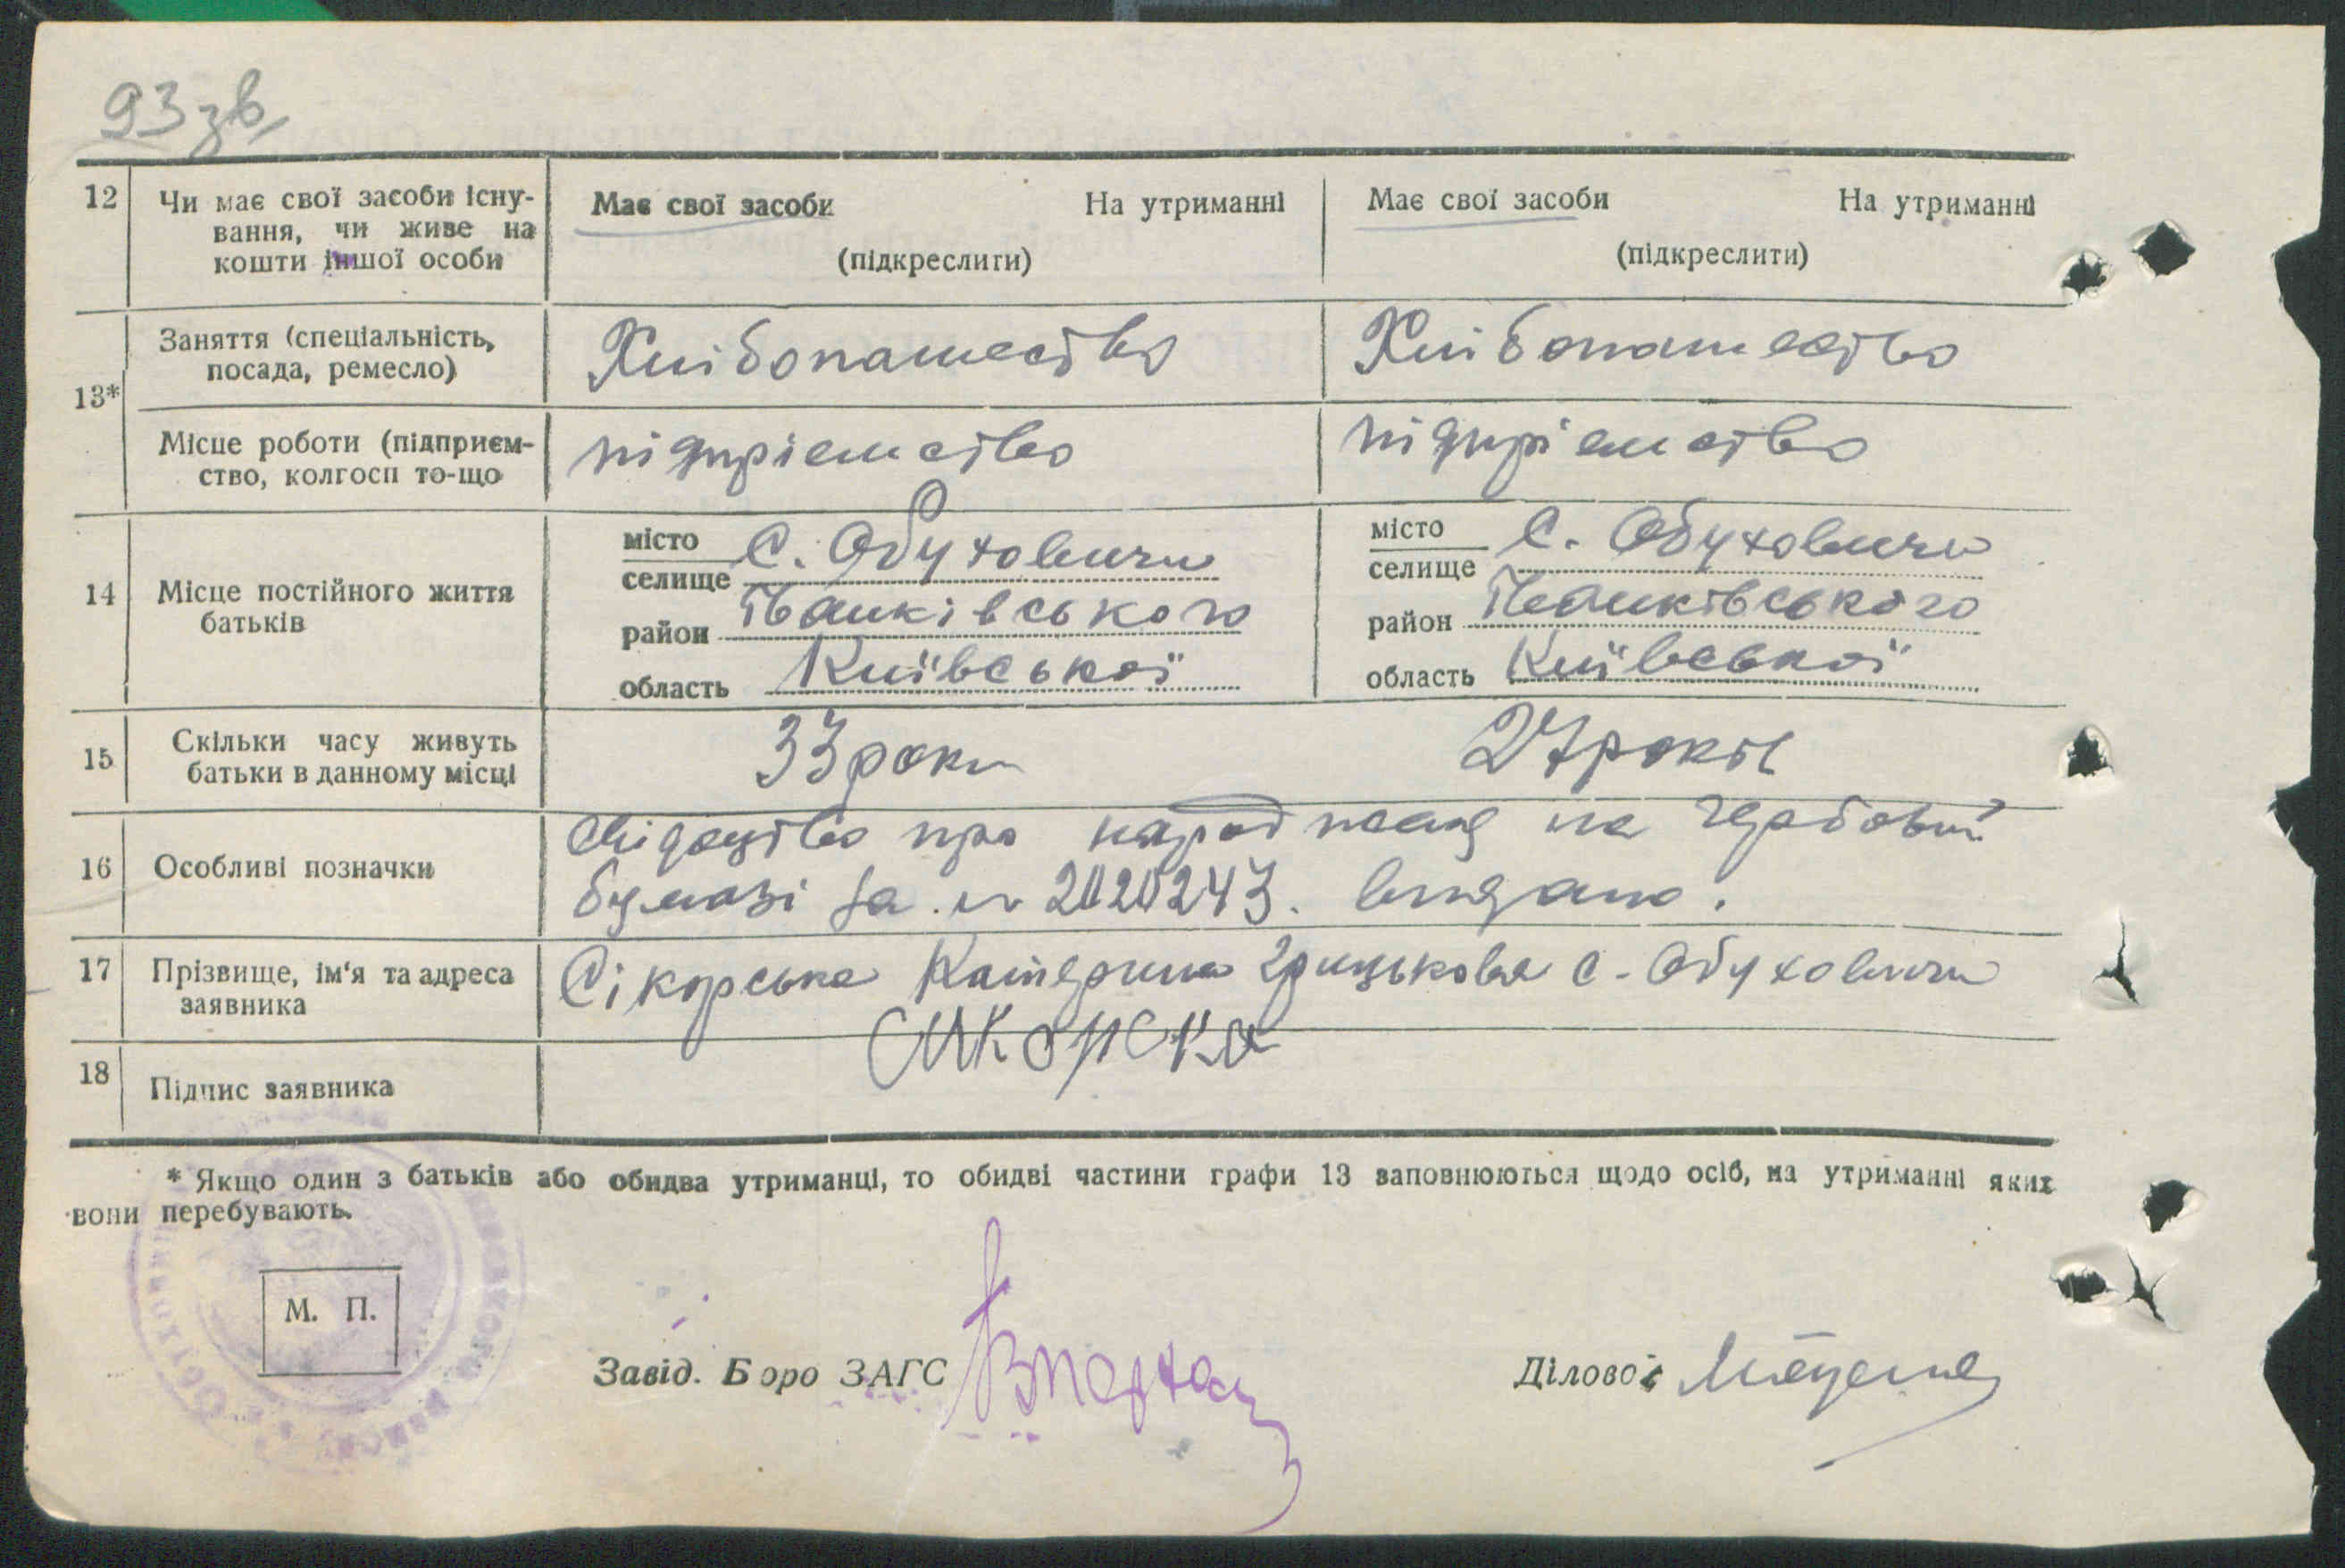 93 зв
12 Чи має свої засоби існу- Має свої засоби На утриманні Має свої засоби На утриманні
вання, чи живе на
кошти іншої особи (підкреслити) (підкреслити)
13* Заняття (спеціальність, Хлібопашество Хлібопашество
посада, ремесло)
Місце роботи (підприєм- підпріємство підпріємство
ство, колгосп то-що
14 Місце постійного життя місто С. Обуховичи місто С. Обуховичи
батьків селище селище
район Іванківського район Іванківського
область Київської область Київської
15 Скільки часу живуть 33 роки 27 років
батьки в данному місці
16 Особливі позначки Свідоцтво про народження на гербовій
бумазі за № 2020243. видано.
17 Прізвище, ім'я та адреса Сікорська Катерина Грицькова с. Обуховичи
заявника
18 Підпис заявника Сикорска
* Якщо один з батьків або обидва утриманці, то обидві частини графи 13 заповнюються щодо осіб, на утриманні яких
вони перебувають.
М. П.
Завід. Бюро ЗАГС Діловод